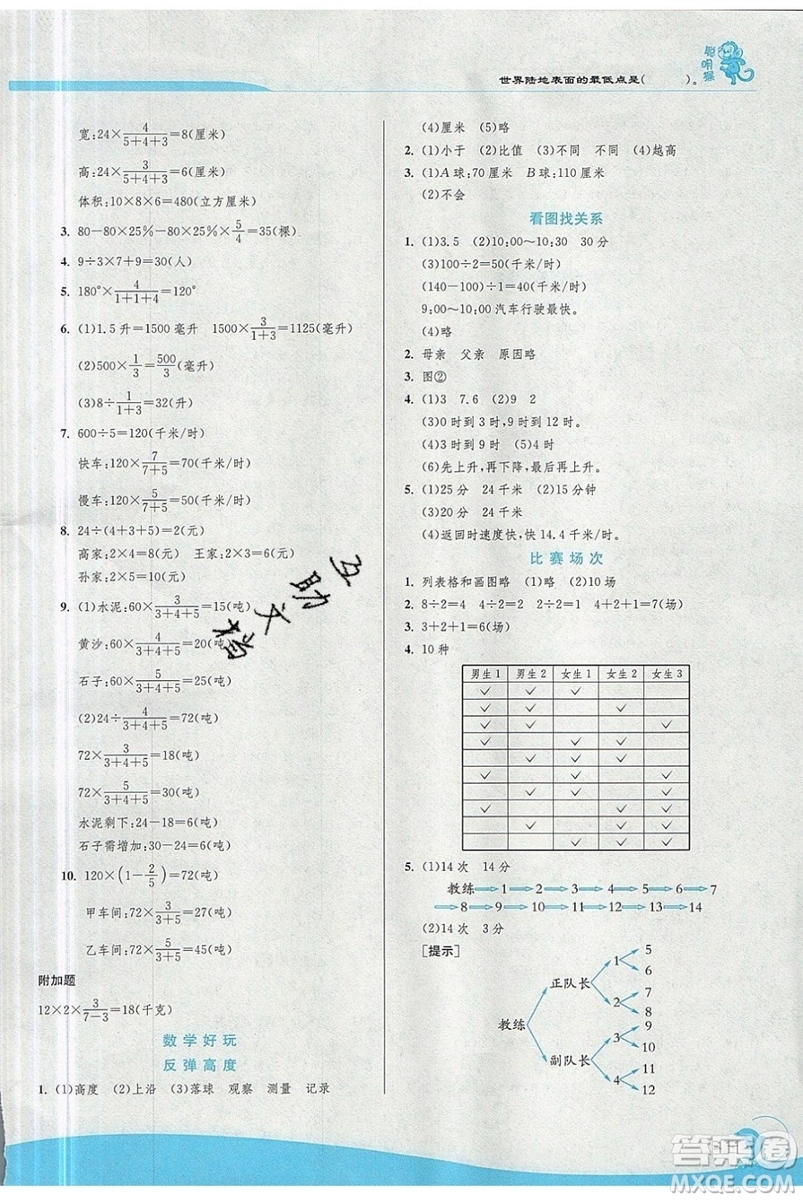 聪明屋
世界陆地表面的最低点是(  )。
宽:24×4/(5+4+3)=8(厘米)
高:24×3/(5+4+3)=6(厘米)
体积:10×8×6=480(立方厘米)
3. 80-80×25%-80×25%×5/4=35(棵)
4. 9÷3×7+9=30(人)
5. 180°×4/(1+1+4)=120°
6. (1)1.5升=1500毫升 1500×3/(1+3)=1125(毫升)
(2)500×1/3=500/3(毫升)
(3)8÷1/(1+3)=32(升)
7. 600÷5=120(千米/时)
快车:120×7/(7+5)=70(千米/时)
慢车:120×5/(7+5)=50(千米/时)
8. 24÷(4+3+5)=2(元)
高家:2×4=8(元) 王家:2×3=6(元)
孙家:2×5=10(元)
9. (1)水泥:60×3/(3+4+5)=15(吨)
黄沙:60×4/(3+4+5)=20(吨)
石子:60×5/(3+4+5)=25(吨)
(2)24÷4/(3+4+5)=72(吨)
72×3/(3+4+5)=18(吨)
72×5/(3+4+5)=30(吨)
水泥剩下:24-18=6(吨)
石子需增加:30-24=6(吨)
10. 120×(1-2/5)=72(吨)
甲车间:72×3/(5+3)=27(吨)
乙车间:72×5/(5+3)=45(吨)
附加题
12×2×3/(7-3)=18(千克)
数学好玩
反弹高度
1. (1)高度 (2)上沿 (3)落球 观察 测量 记录
(4)厘米 (5)略
2. (1)小于 (2)比值 (3)不同 不同 (4)越高
3. (1)A球:70厘米 B球:110厘米
(2)不会
看图找关系
1. (1)3.5 (2)10:00~10:30 30分
(3)100÷2=50(千米/时)
(140-100)÷1=40(千米/时)
9:00~10:00汽车行驶最快。
(4)略
2. 母亲 父亲 原因略
3. 图②
4. (1)3 7.6 (2)9 2
(3)0时到3时,9时到12时。
(4)3时到9时 (5)4时
(6)先上升,再下降,最后再上升。
5. (1)25分 24千米 (2)15分钟
(3)20分 24千米
(4)返回时速度快,快14.4千米/时。
比赛场次
1. 列表格和画图略 (1)略 (2)10场
2. 8÷2=4 4÷2=2 2÷2=1 4+2+1=7(场)
3. 3+2+1=6(场)
4. 10种
男生1 男生2 女生1 女生2 女生3
✓ ✓ ✓
✓ ✓ ✓
✓ ✓ ✓
✓ ✓ ✓
✓ ✓ ✓
✓ ✓ ✓
✓ ✓ ✓
✓ ✓ ✓
✓ ✓ ✓
✓ ✓ ✓
5. (1)14次 14分
教练→1→2→3→4→5→6→7
→8→9→10→11→12→13→14
(2)14次 3分
[提示]
教练
正队长
副队长
1
2
3
4
5
6
7
8
9
10
11
12
互助文档
答案圈
MXQE.COM